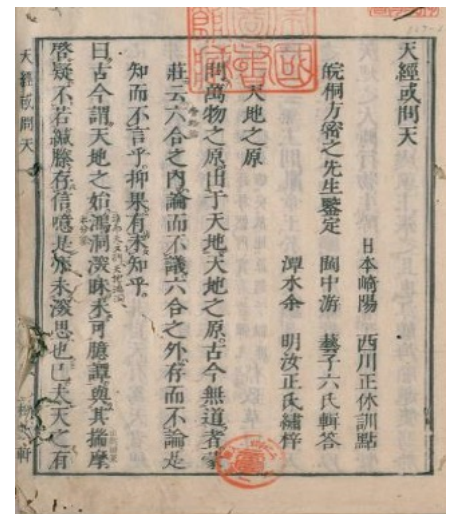 天經或問天
日本崎陽　西川正休訓點
皖桐方密之先生鑒定　閩中游　藝子六氏輯答
潭水余　明汝正氏繡梓
天地之原
問萬物之原由于天地天地之原古今無道者蒙
莊云六合之內論而不議六合之外存而不論是
知而不言乎抑果有未知乎
曰古今謂天地之始鴻洞濛昧未可臆譚與其揣摩
啓疑不若緘縢存信噫是亦未深思也已夫天之有
天經或問天